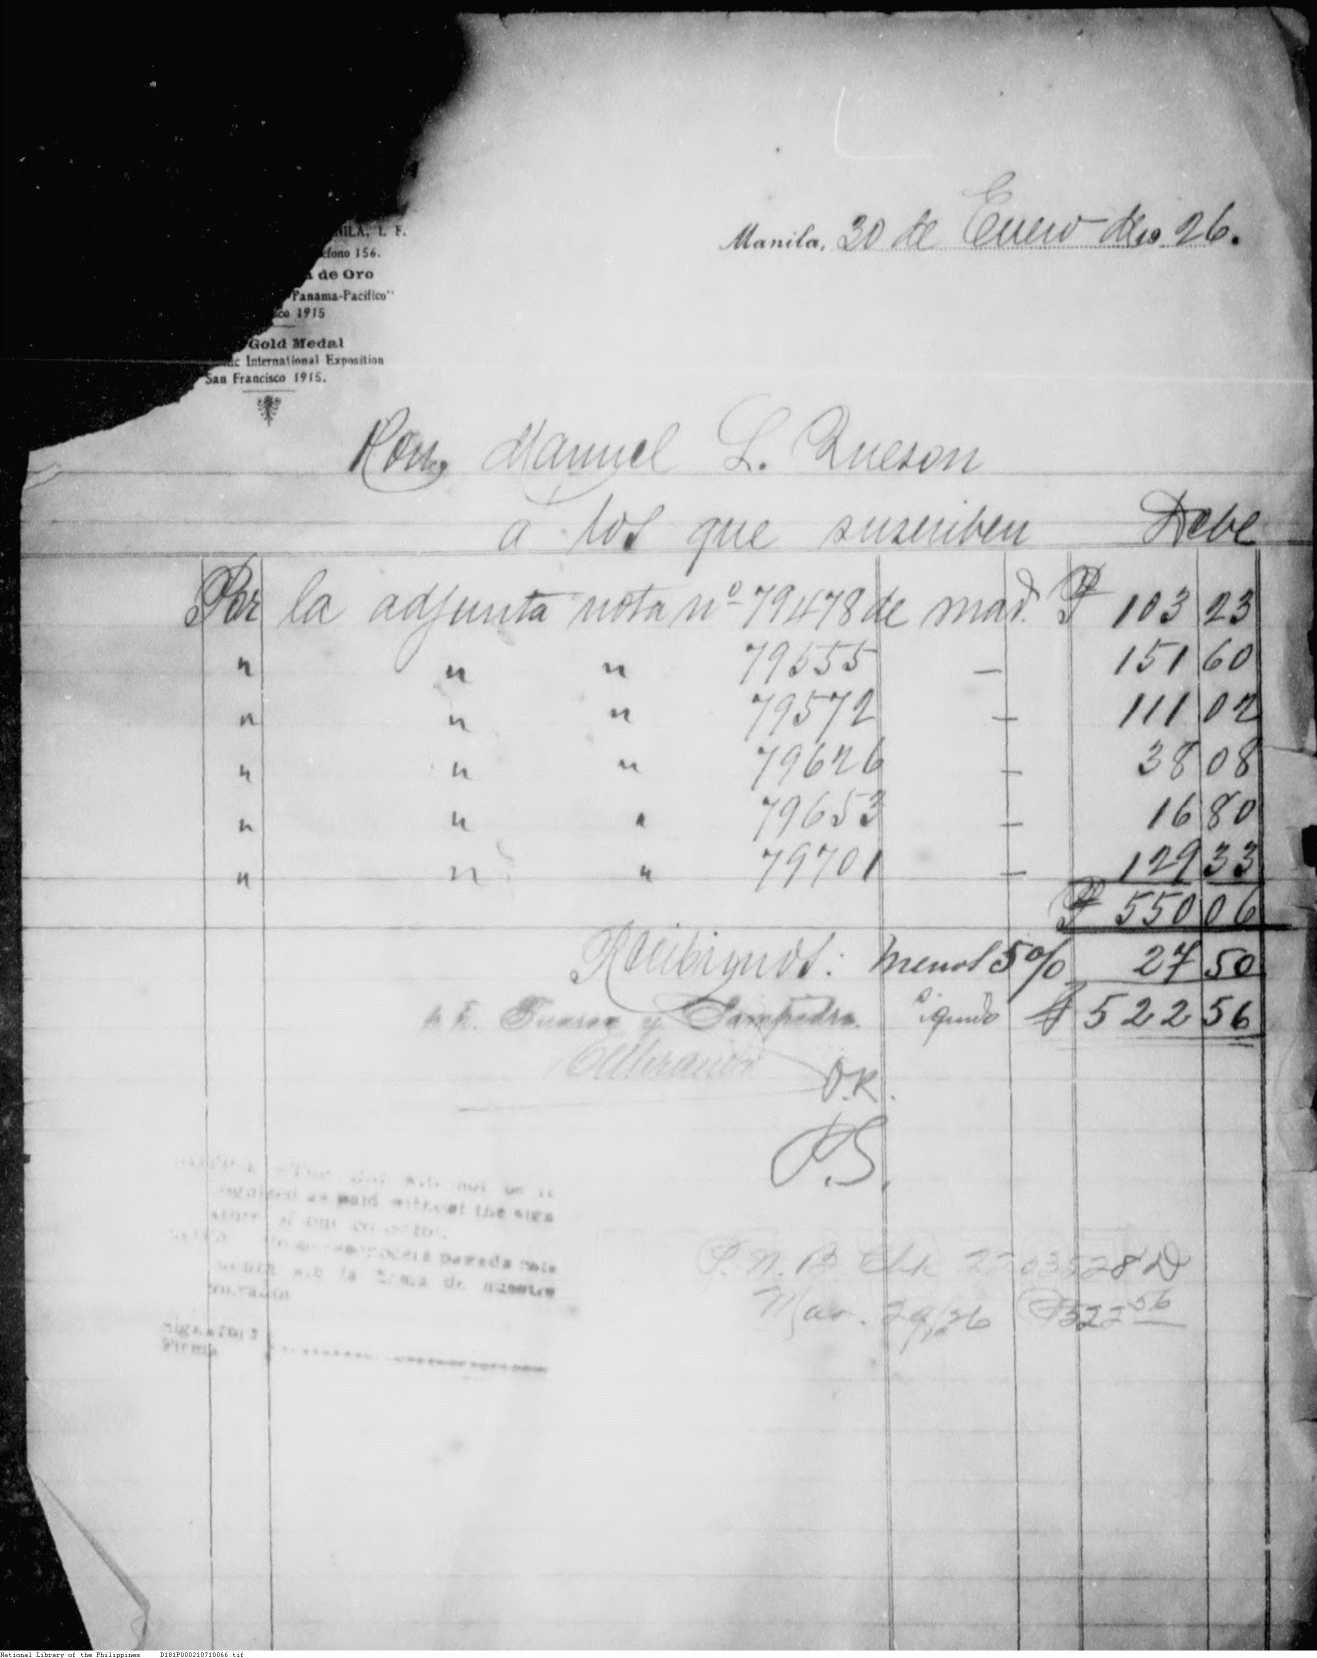 NILA, I. F.
éfono 156.
de Oro
Panama-Pacífico"
co 1915
Gold Medal
International Exposition
San Francisco 1915.
Manila, 30 de Enero de 19 26.
Hon. Manuel L. Quezon
á los que suscriben Debe
Por la adjunta nota nº 79478 de mad. ₱ 103 23
" " " 79555 — 151 60
" " " 79572 — 111 02
" " " 79626 — 38 08
" " " 79653 — 16 80
" " " 79701 — 129 33
₱ 550 06
Recibimos: menos 5% 27 50
p. p. Suarez y Sampedro. Líquido ₱ 522 56
O.K.
P.S.
will not be re
cognized as paid without the signa
ature of our
pagada
sin la firma de nuestro
cobrador
Signature
Firma
P.N.B. Chk 2203528 D
Mar. 29/26 ₱522 56
National Library of the Philippines D181P000210710066.tif